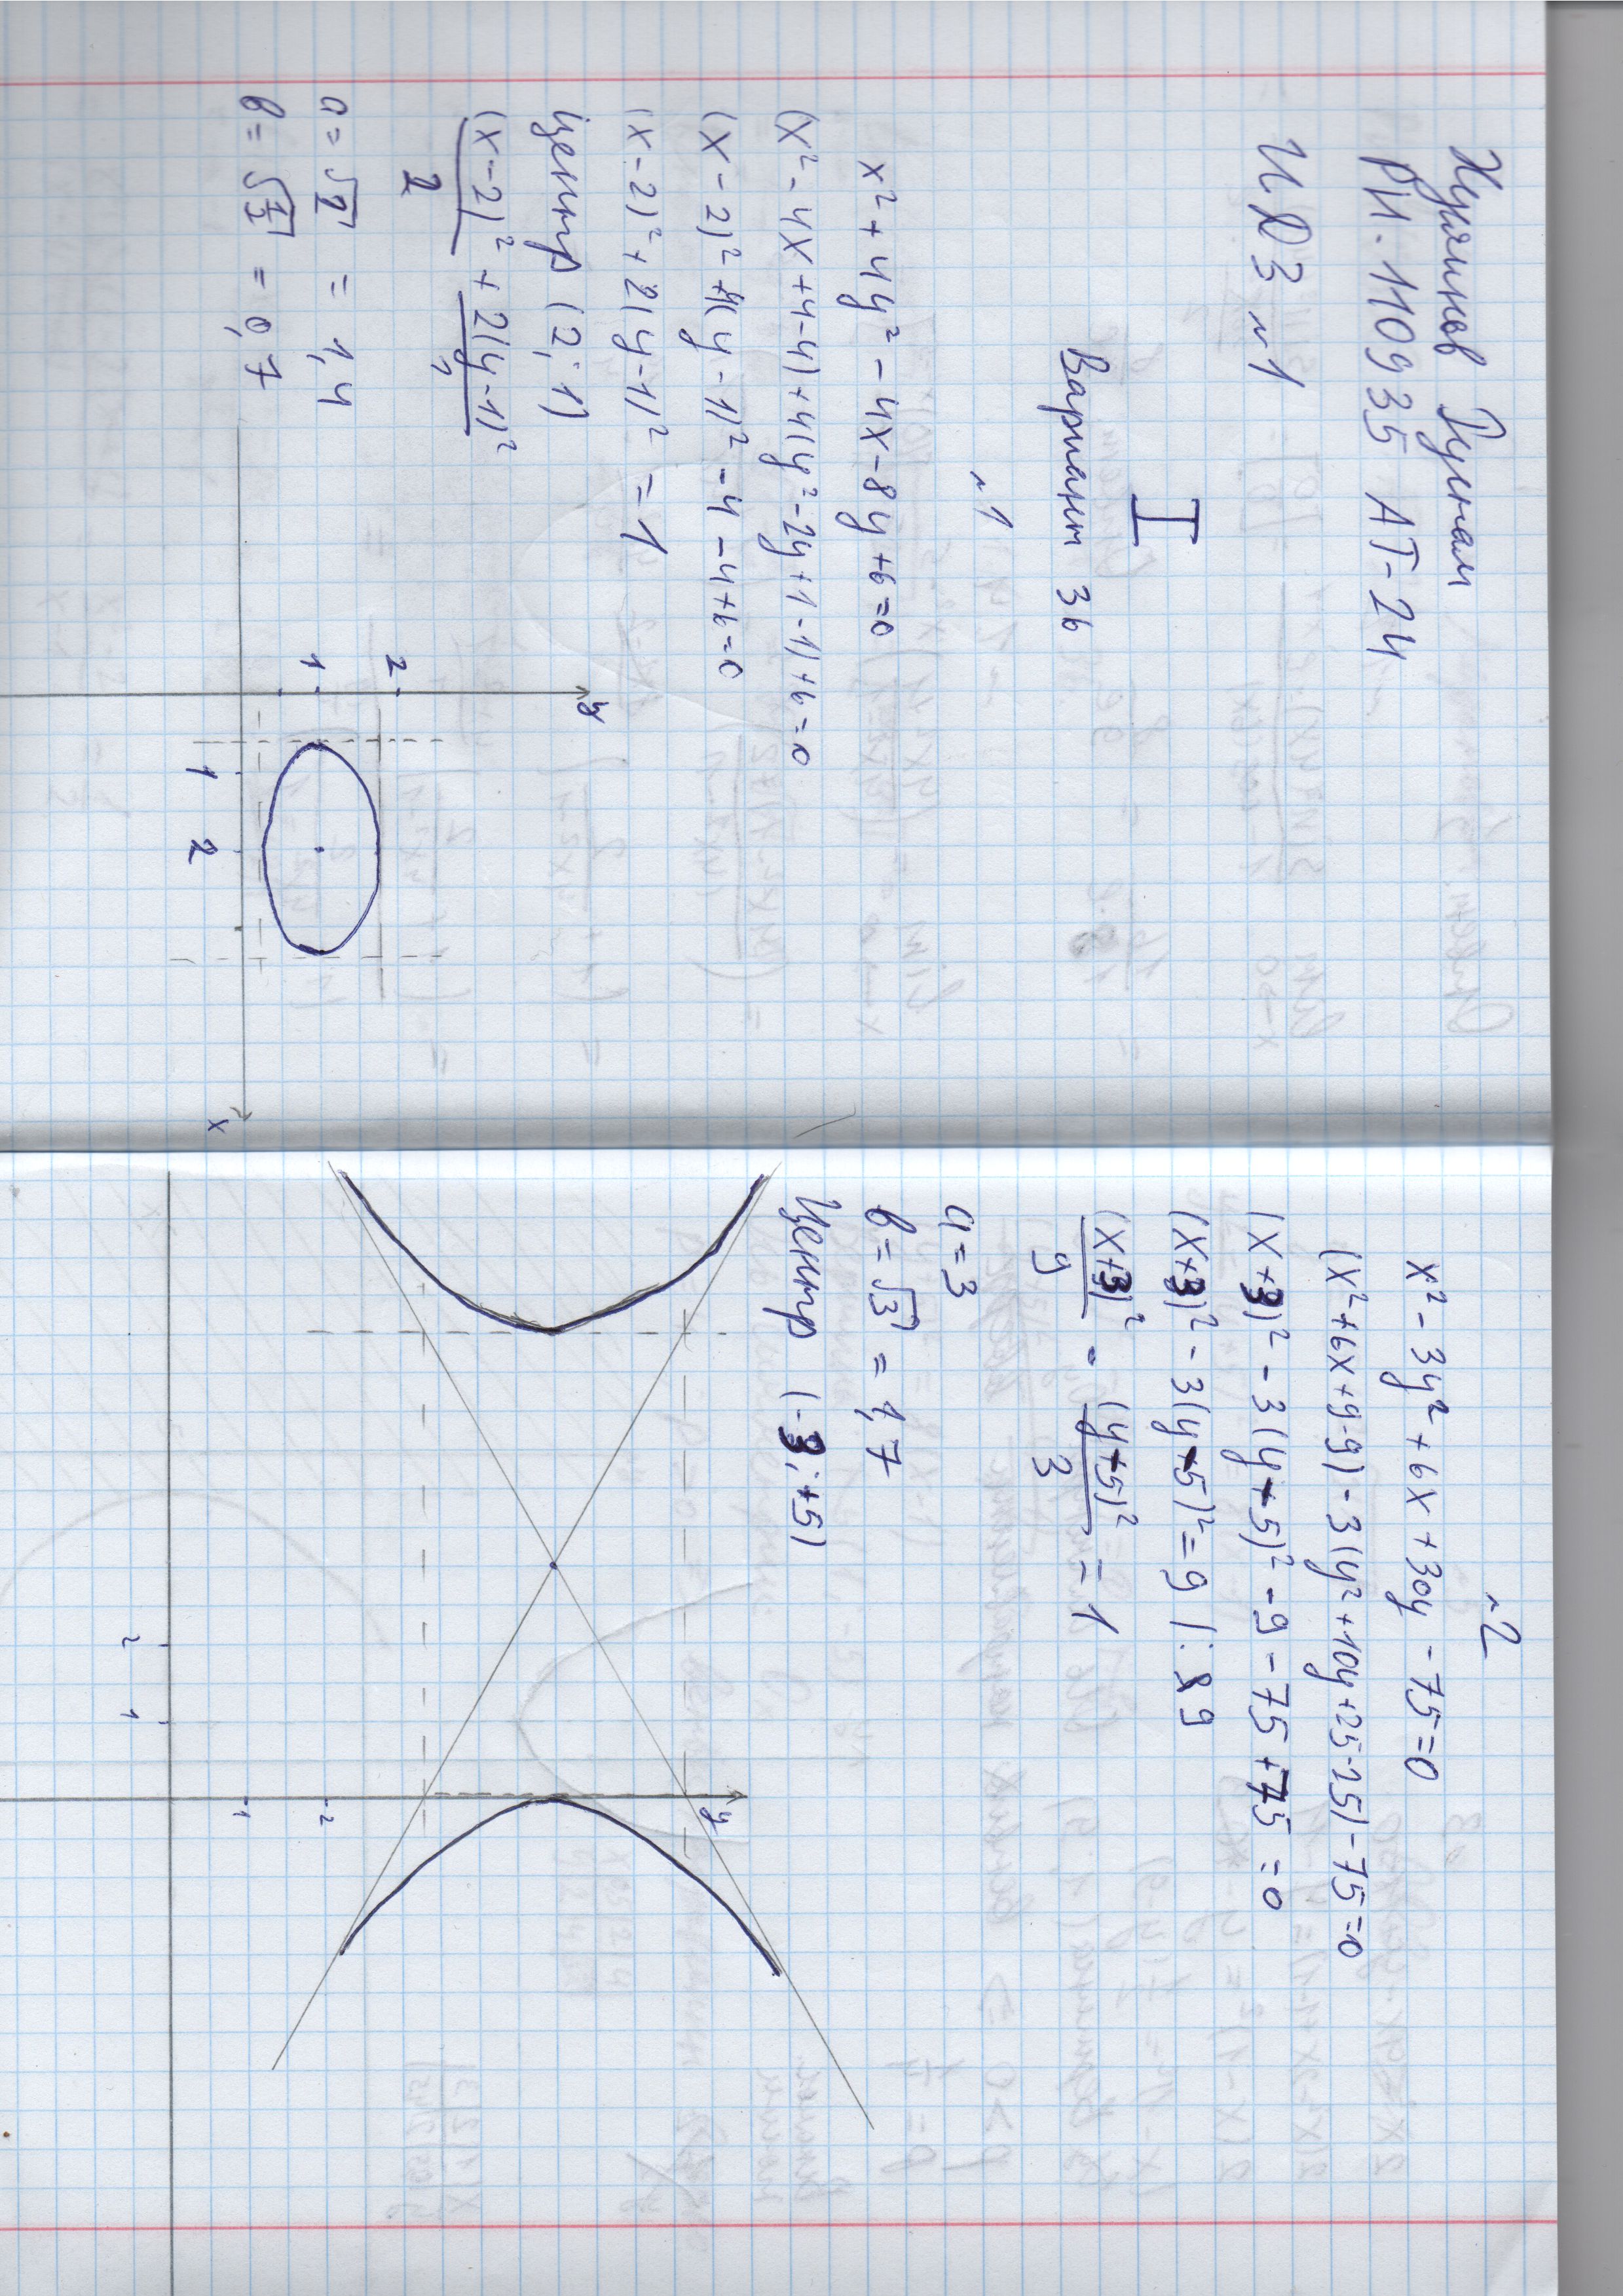 Хуснияинов Руслан
РИ-110935 АТ-24
ИДЗ №1
I
Вариант 36
№1
x² + 4y² - 4x - 8y + 6 = 0
(x² - 4x + 4 - 4) + 4(y² - 2y + 1 - 1) + 6 = 0
(x - 2)² + 4(y - 1)² - 4 - 4 + 6 = 0
(x - 2)² + 2(y - 1)² = 1
Центр (2; 1)
(x - 2)²/2 + 2(y - 1)²/1
a = √2 = 1,4
b = √½ = 0,7
y
2
1
1 2
x
№2
x² - 3y² + 6x + 30y - 75 = 0
(x² + 6x + 9 - 9) - 3(y² + 10y + 25 - 25) - 75 = 0
(x + 3)² - 3(y - 5)² - 9 - 75 + 75 = 0
(x + 3)² - 3(y - 5)² = 9 |: 9
(x + 3)²/9 - (y - 5)²/3 = 1
a = 3
b = √3 = 1,7
Центр (-3; +5)
y
2
1
2 1